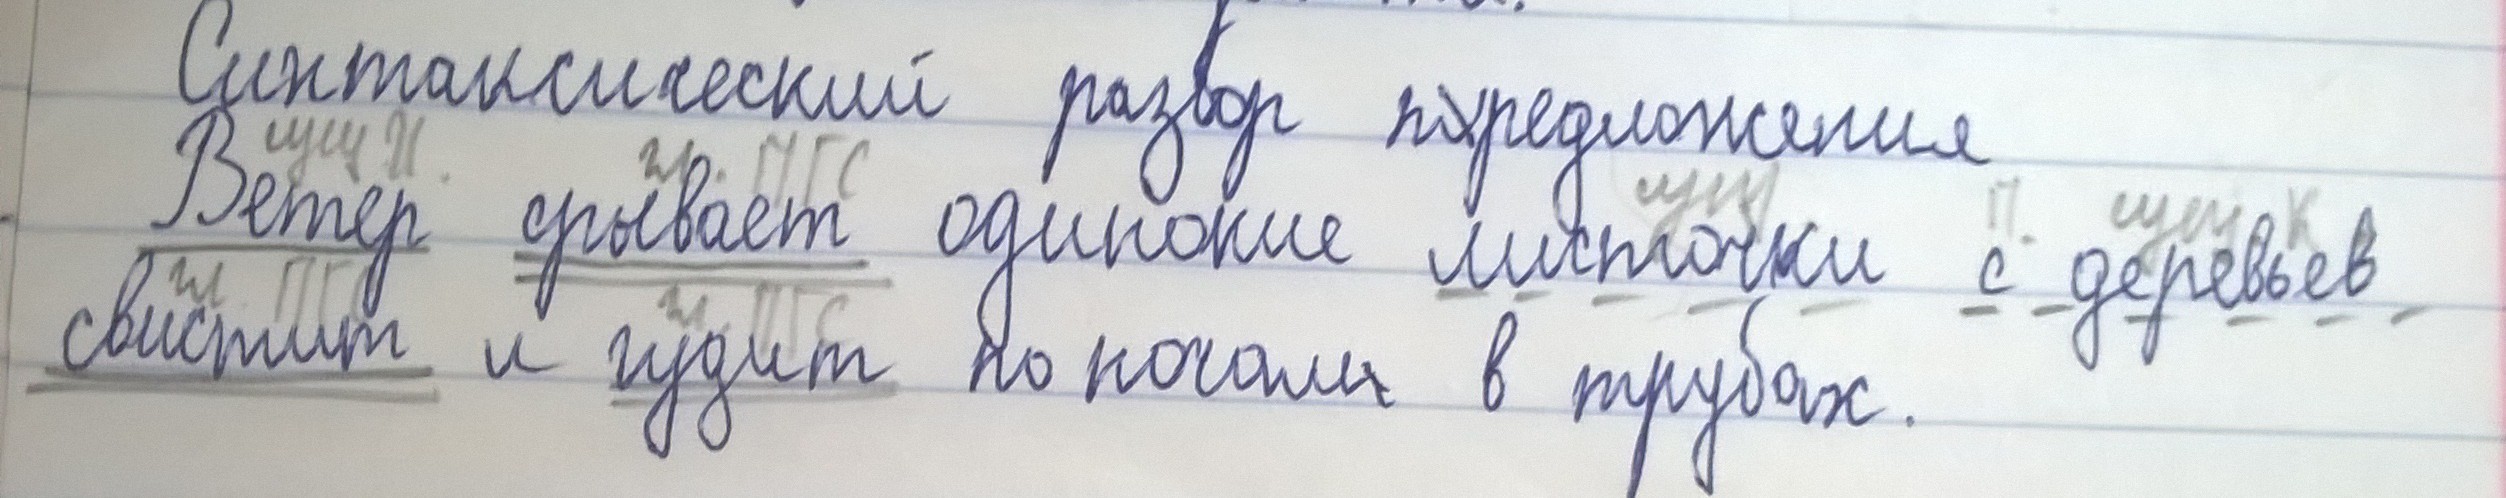 Синтаксический разбор предложения
сущ И.
гл. ПГС
сущ
п.
сущ К
Ветер срывает одинокие листочки с деревьев
гл. ПГС
гл. ПГС
свистит и гудит по ночам в трубах.